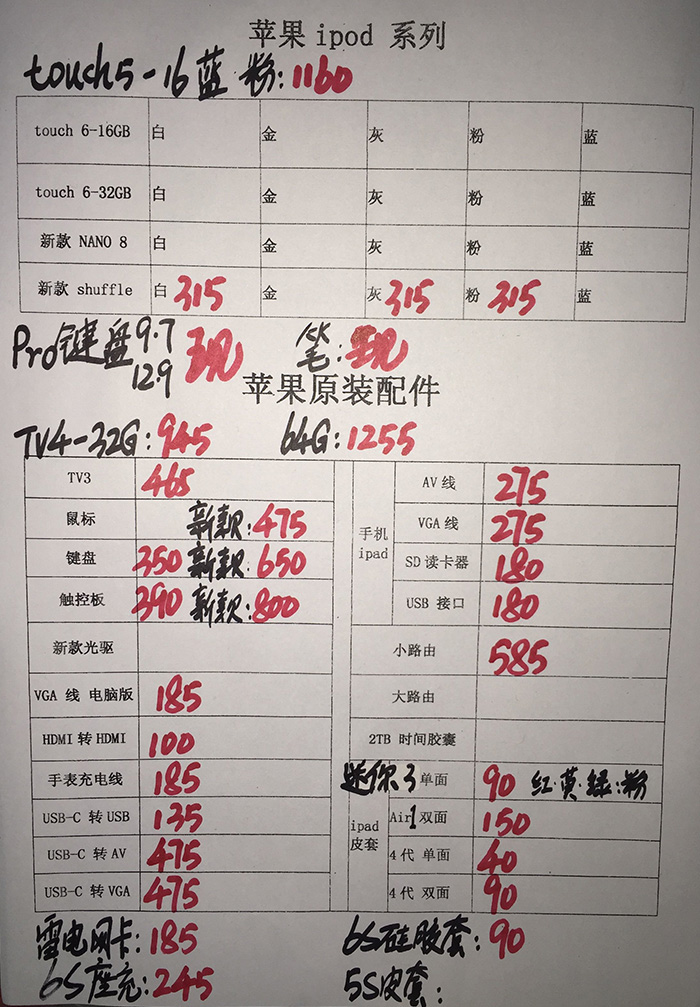 苹果 ipod 系列
touch5-16 蓝 粉:1160
touch 6-16GB 白 金 灰 粉 蓝
touch 6-32GB 白 金 灰 粉 蓝
新款 NANO 8 白 金 灰 粉 蓝
新款 shuffle 白 315 金 灰 315 粉 315 蓝
Pro键盘 9.7 12.9 现 笔:现
苹果原装配件
TV4-32G:945 64G:1255
TV3 465
鼠标 新款:475
键盘 350 新款:650
触控板 390 新款:800
新款光驱
VGA 线 电脑版 185
HDMI 转 HDMI 100
手表充电线 185
USB-C 转 USB 135
USB-C 转 AV 475
USB-C 转 VGA 475
手机 ipad
AV 线 275
VGA 线 275
SD 读卡器 180
USB 接口 180
小路由 585
大路由
2TB 时间胶囊
ipad 皮套
迷你3 单面 90 红·黄·绿:粉
Air1 双面 150
4代 单面 40
4代 双面 90
雷电网卡:185 6S硅胶套:90
6S座充:245 5S皮套: